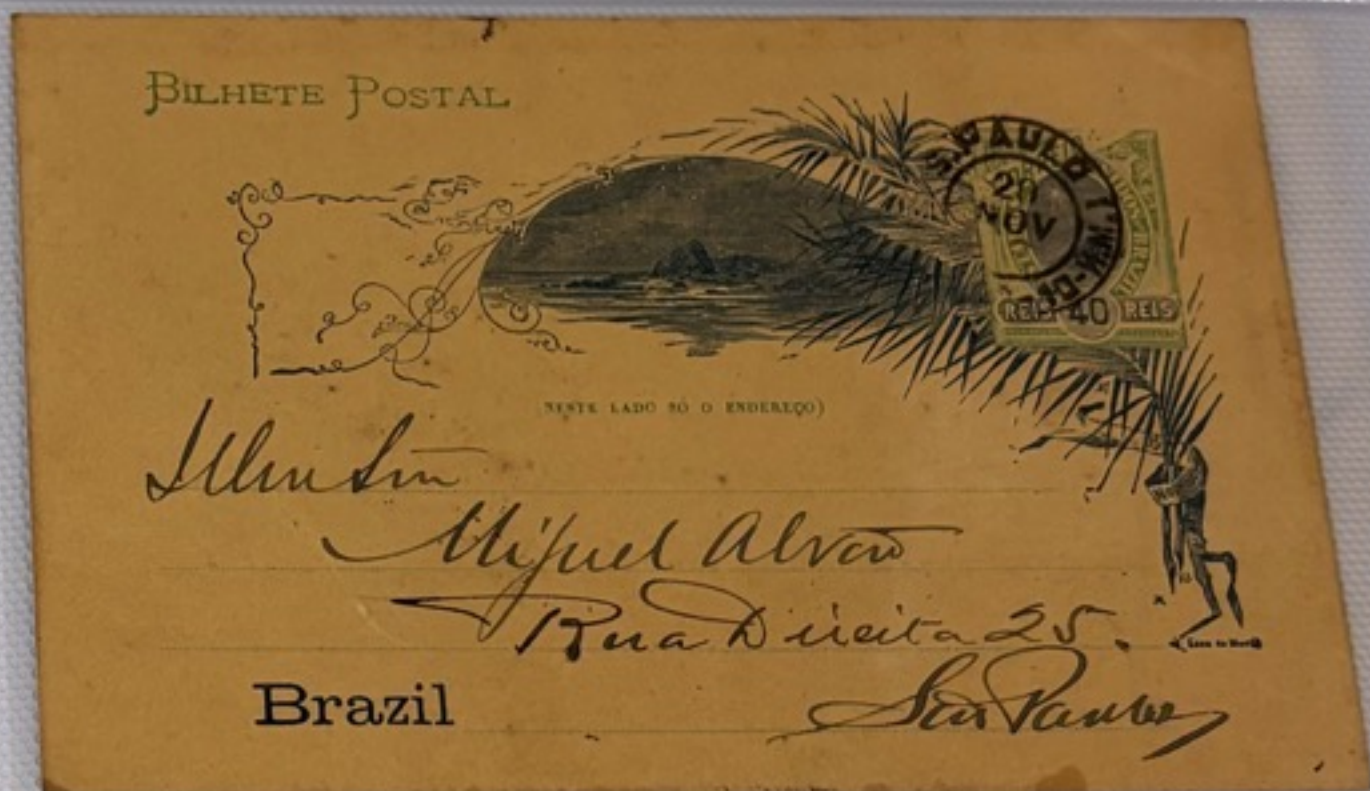 BILHETE POSTAL
S. PAULO 1.
20
NOV
REIS 40 REIS
(NESTE LADO SÓ O ENDEREÇO)
Illm Snr
Miguel Alvaro
Rua Direita 25.
Brazil
São Paulo